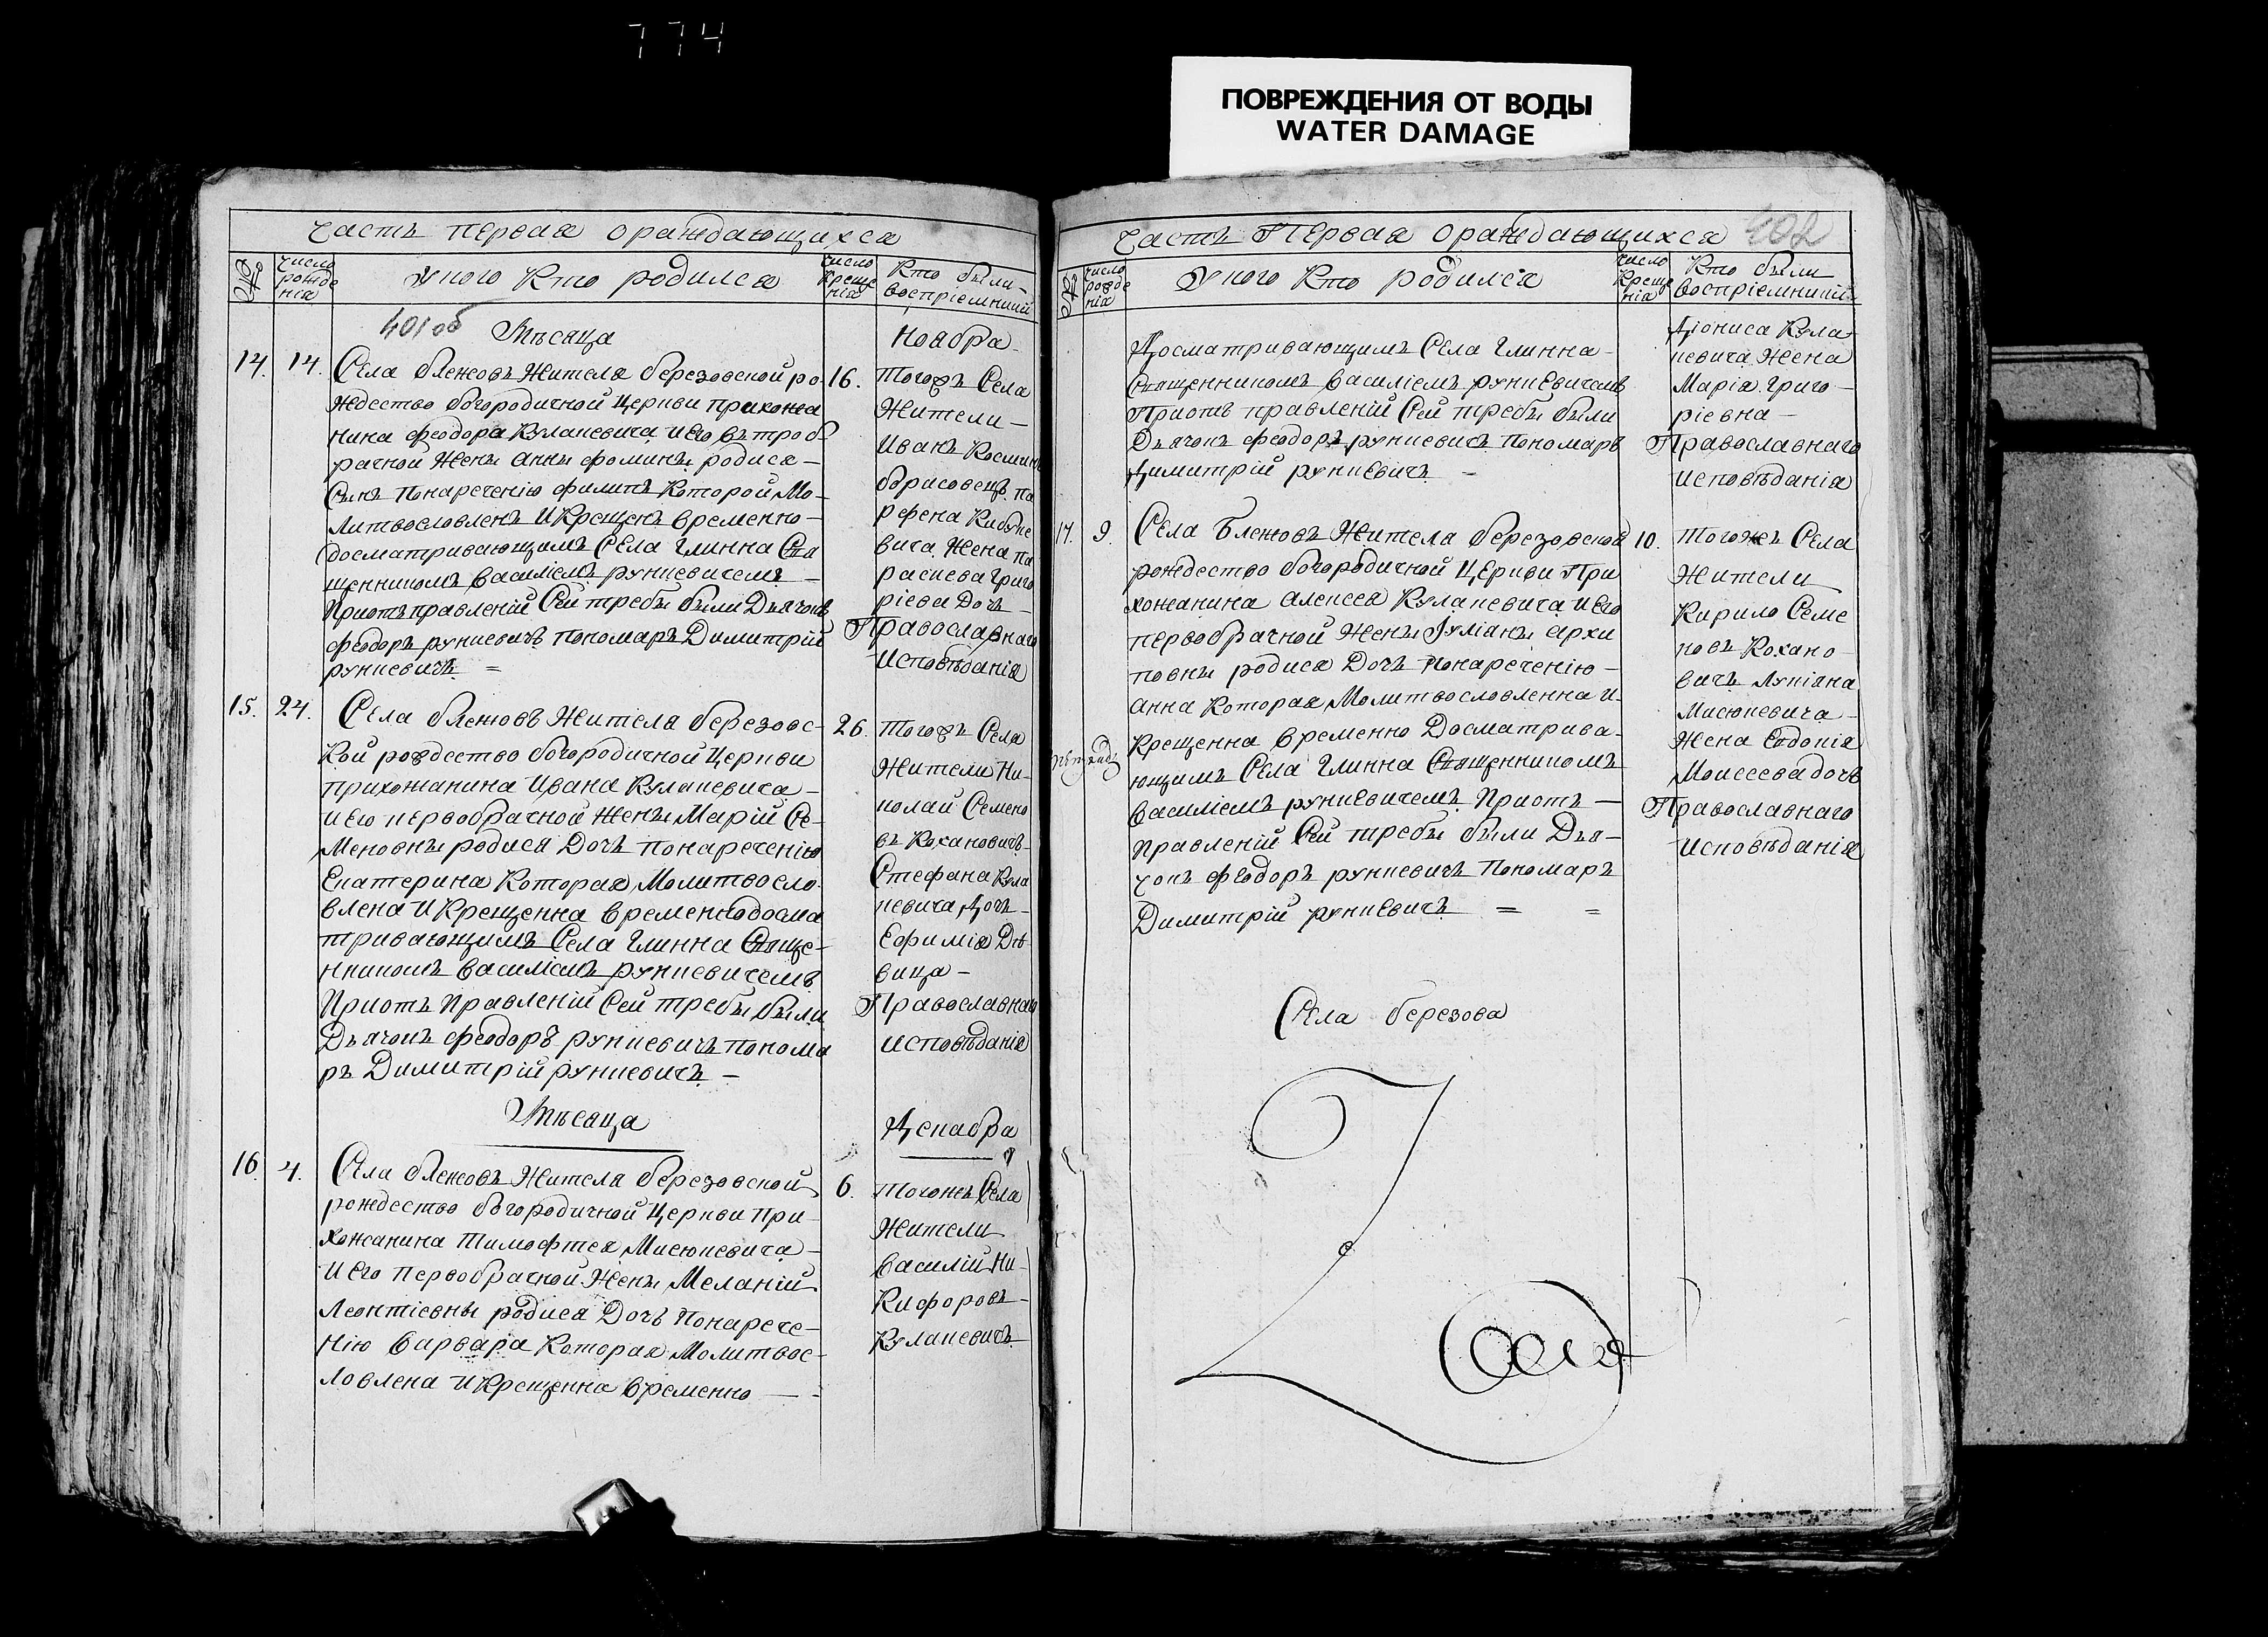 774
ПОВРЕЖДЕНИЯ ОТ ВОДЫ
WATER DAMAGE
Часть первая ораждающихся
число рожденія
Укого Кто родился
число крещенія
Кто были воспріемники
401 об
Мѣсяца
Ноября
14. 14.
Села блежовъ Жителя березовской ро-
ждество богородичной Церкви прихожа
нина феодора Кулакевича и Его втроб-
рачной Жены Анны фомины родися —
Сынъ понареченію филипъ Которой Мо-
литвословленъ И Крещенъ временно —
досматривающимъ Села Глинна Свя
щенникомъ Василіемъ рункевичемъ —
Приотъправленій Сей требы были Дьячокъ
феодоръ рункевичъ пономаръ Димитрій
рункевичъ =
16.
тогожъ Села
Жители —
Иванъ Космин
борисовецъ па
рфена
вича Жена па
раскева Григо
ріева Дочь —
Православнаго
Исповѣданія
15. 24.
Села блежовъ Жителя березовс-
Кой рождество богородичной Церкви
прихожанина Ивана Кулакевича —
и Его первобрачной Жены Марій Се-
меновны родися Дочь понареченію
Екатерина Которая Молитвосло-
влена И Крещенна временнодосма
тривающимъ Села Глинна Свяще-
нникомъ Василіемъ рункевичемъ
Приотъ Правленій Сей требы были
Дьячокъ феодоръ рункевичъ понома
ръ Димитрій рункевичъ —
26.
тогожъ Села
Жители Ни-
колай Семено
въ Кохановичъ
Стефана Кула
кевича Дочь —
Ефимія Дѣ-
вица —
Православнаго
исповѣданія
Мѣсяца
Декабря
16 4.
Села блежовъ Жителя березовской
рождество богородичной Церкви при-
хожанина Тимофтея Мисюкевича —
И Его первобрачной Жены Меланій
Леонтіевны родися Дочь Понарече-
нію Варвара Которая Молитвос-
ловлена И Крещенна временно —
6.
тогожъ Села
Жители
Василій Ни-
кифоровъ —
Кулакевичъ
Часть Первая Ораждающихся
402
число рожденія
Укого Кто родился
число крещенія
Кто были воспріемники
Досматривающимъ Села Глинна —
Священникомъ Василіемъ рункевичемъ
Приотъ правленій Сей требы были
Дьячокъ феодоръ рункевичъ пономаръ
Димитрій рункевичъ —
Діониса Кула-
кевича Жена
Марія Григо —
ріевна —
Православнаго
исповѣданія
17. 9.
Села Блежовъ Жителя березовской
рождество богородичной Церкви При
хожанина Алексея Кулакевича и Его
первобрачной Жены Іуліаны Архи
повны родися Дочь понареченію —
Анна Которая Молитвословленна И
Крещенна временно Досматрива-
ющимъ Села Глинна Священникомъ
Василіемъ рункевичемъ Приотъ —
правленій Сей требы были Дья-
чокъ феодоръ рункевичъ пономаръ
Димитрій рункевичъ = =
10.
тогожъ Села
Жители
Кирило Семе
новъ Кохано —
вичъ Лукіяна
Мисюкевича —
Жена Евдокія
Моисеева дочь
Православнаго
исповѣданія
Села березова